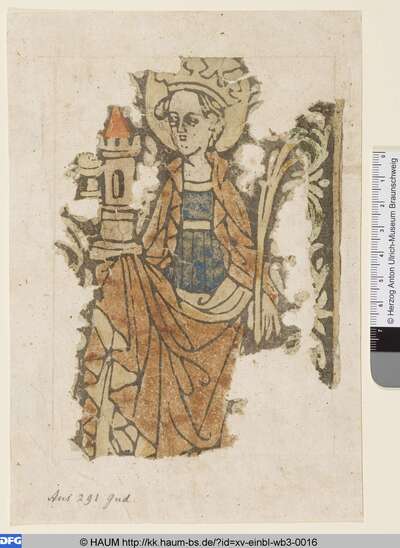 0 1 2 3 4 5 6 7
© Herzog Anton Ulrich-Museum Braunschweig
Aus 291 Gud.
DFG
© HAUM http://kk.haum-bs.de/?id=xv-einbl-wb3-0016